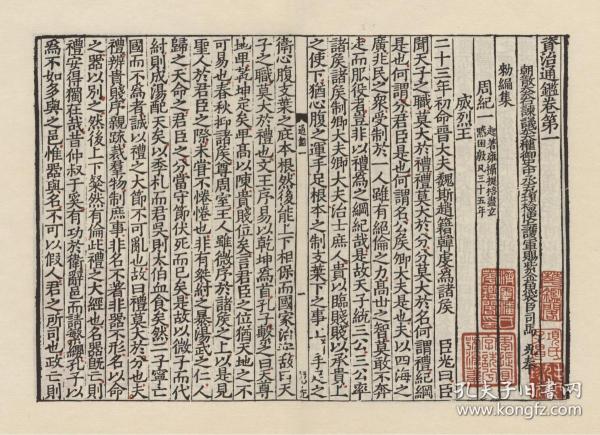 資治通鑑卷第一
朝散大夫右諫議大夫權御史中丞充理檢使上護軍賜紫金魚袋臣司馬光奉
勑編集
周紀一 起著雍攝提格盡玄黓困敦凡三十五年
威烈王
二十三年初命晉大夫魏斯趙籍韓虔為諸侯 臣光曰臣
聞天子之職莫大於禮禮莫大於分分莫大於名何謂禮紀綱
是也何謂分君臣是也何謂名公侯卿大夫是也夫以四海之
廣兆民之衆受制於一人雖有絕倫之力高世之智莫敢不奔
走而服役者豈非以禮為之綱紀哉是故天子統三公三公率
諸侯諸侯制卿大夫卿大夫治士庶人貴以臨賤賤以承貴上
之使下猶心腹之運手足根本之制支葉下之事上猶手足之
衛心腹支葉之庇本根然後能上下相保而國家治安故曰天
子之職莫大於禮也文王序易以乾坤為首孔子繫之曰天尊
地卑乾坤定矣卑高以陳貴賤位矣言君臣之位猶天地之不
可易也春秋抑諸侯尊周室王人雖微序於諸侯之上以是見
聖人於君臣之際未甞不惓惓也非有桀紂之暴湯武之仁人
歸之天命之君臣之分當守節伏死而已矣是故以微子而代
紂則成湯配天矣以季札而君吳則太伯血食矣然二子寧亡
國而不為者誠以禮之大節不可亂也故曰禮莫大於分也夫
禮辨貴賤序親疎裁羣物制庶事非名不著非器不形名以命
之器以別之然後上下粲然有倫此禮之大經也名器既亡則
禮安得獨在哉昔仲叔于奚有功於衛辭邑而請繁纓孔子以
為不如多與之邑惟器與名不可以假人君之所司也政亡則
通鑑一
孔夫子旧书网
www.kongfz.com